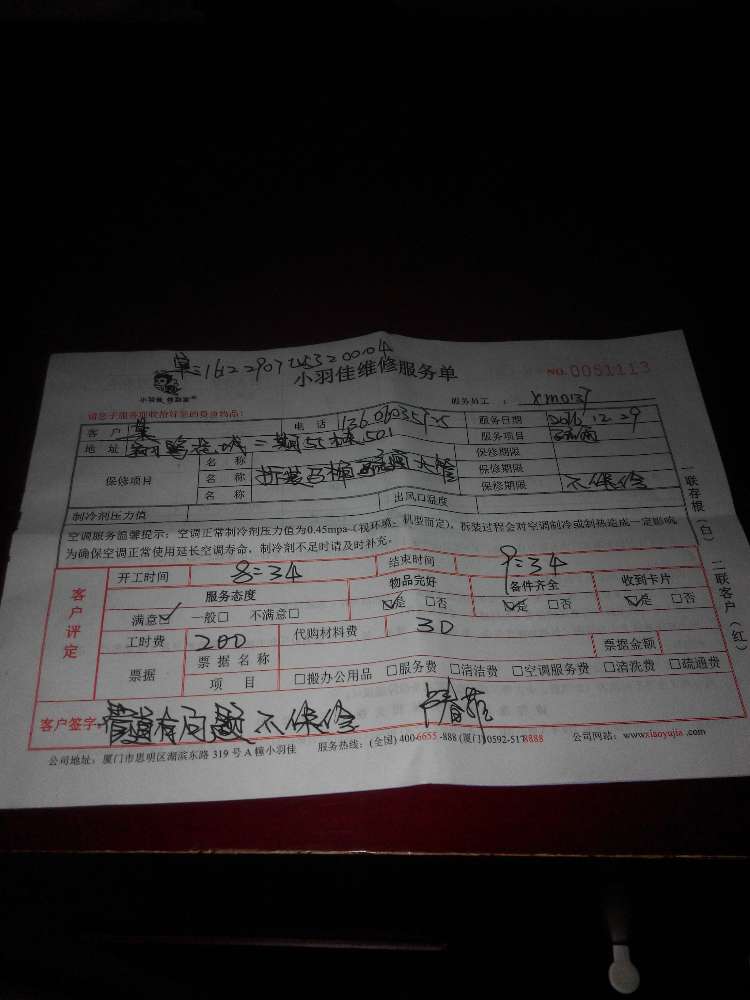 单:
小羽佳维修服务单 NO.0051113
小羽佳 修到家 服务员工 : XM0137
请您于服务前收拾好您的贵重物品:
客户 电话 服务日期 2016.12.29
地址 二期55 501 服务项目
保修项目 名称 保修期限
名称 拆装马桶 保修期限
名称 保修期限 不保修
制冷剂压力值 出风口温度
空调服务温馨提示:空调正常制冷剂压力值为0.45mpa-(视环境、机型而定),拆装过程会对空调制冷或制热造成一定影响
为确保空调正常使用延长空调寿命,制冷剂不足时请及时补充。
一联存根(白) 二联客户(红)
客户评定
开工时间 8:34 结束时间 9:34
服务态度 物品完好 备件齐全 收到卡片
满意☑ 一般□ 不满意□ ☑是 □否 ☑是 □否 ☑是 □否
工时费 200 代购材料费 30 票据金额
票据 票据名称
项目 □搬办公用品 □服务费 □清洁费 □空调服务费 □清洗费 □疏通费
客户签字: 管道有问题 不保修
公司地址:厦门市思明区湖滨东路 319 号 A 幢小羽佳 服务热线:(全国) 400-6655-888 (厦门)0592-5178888 公司网站:www.xiaoyujia.com